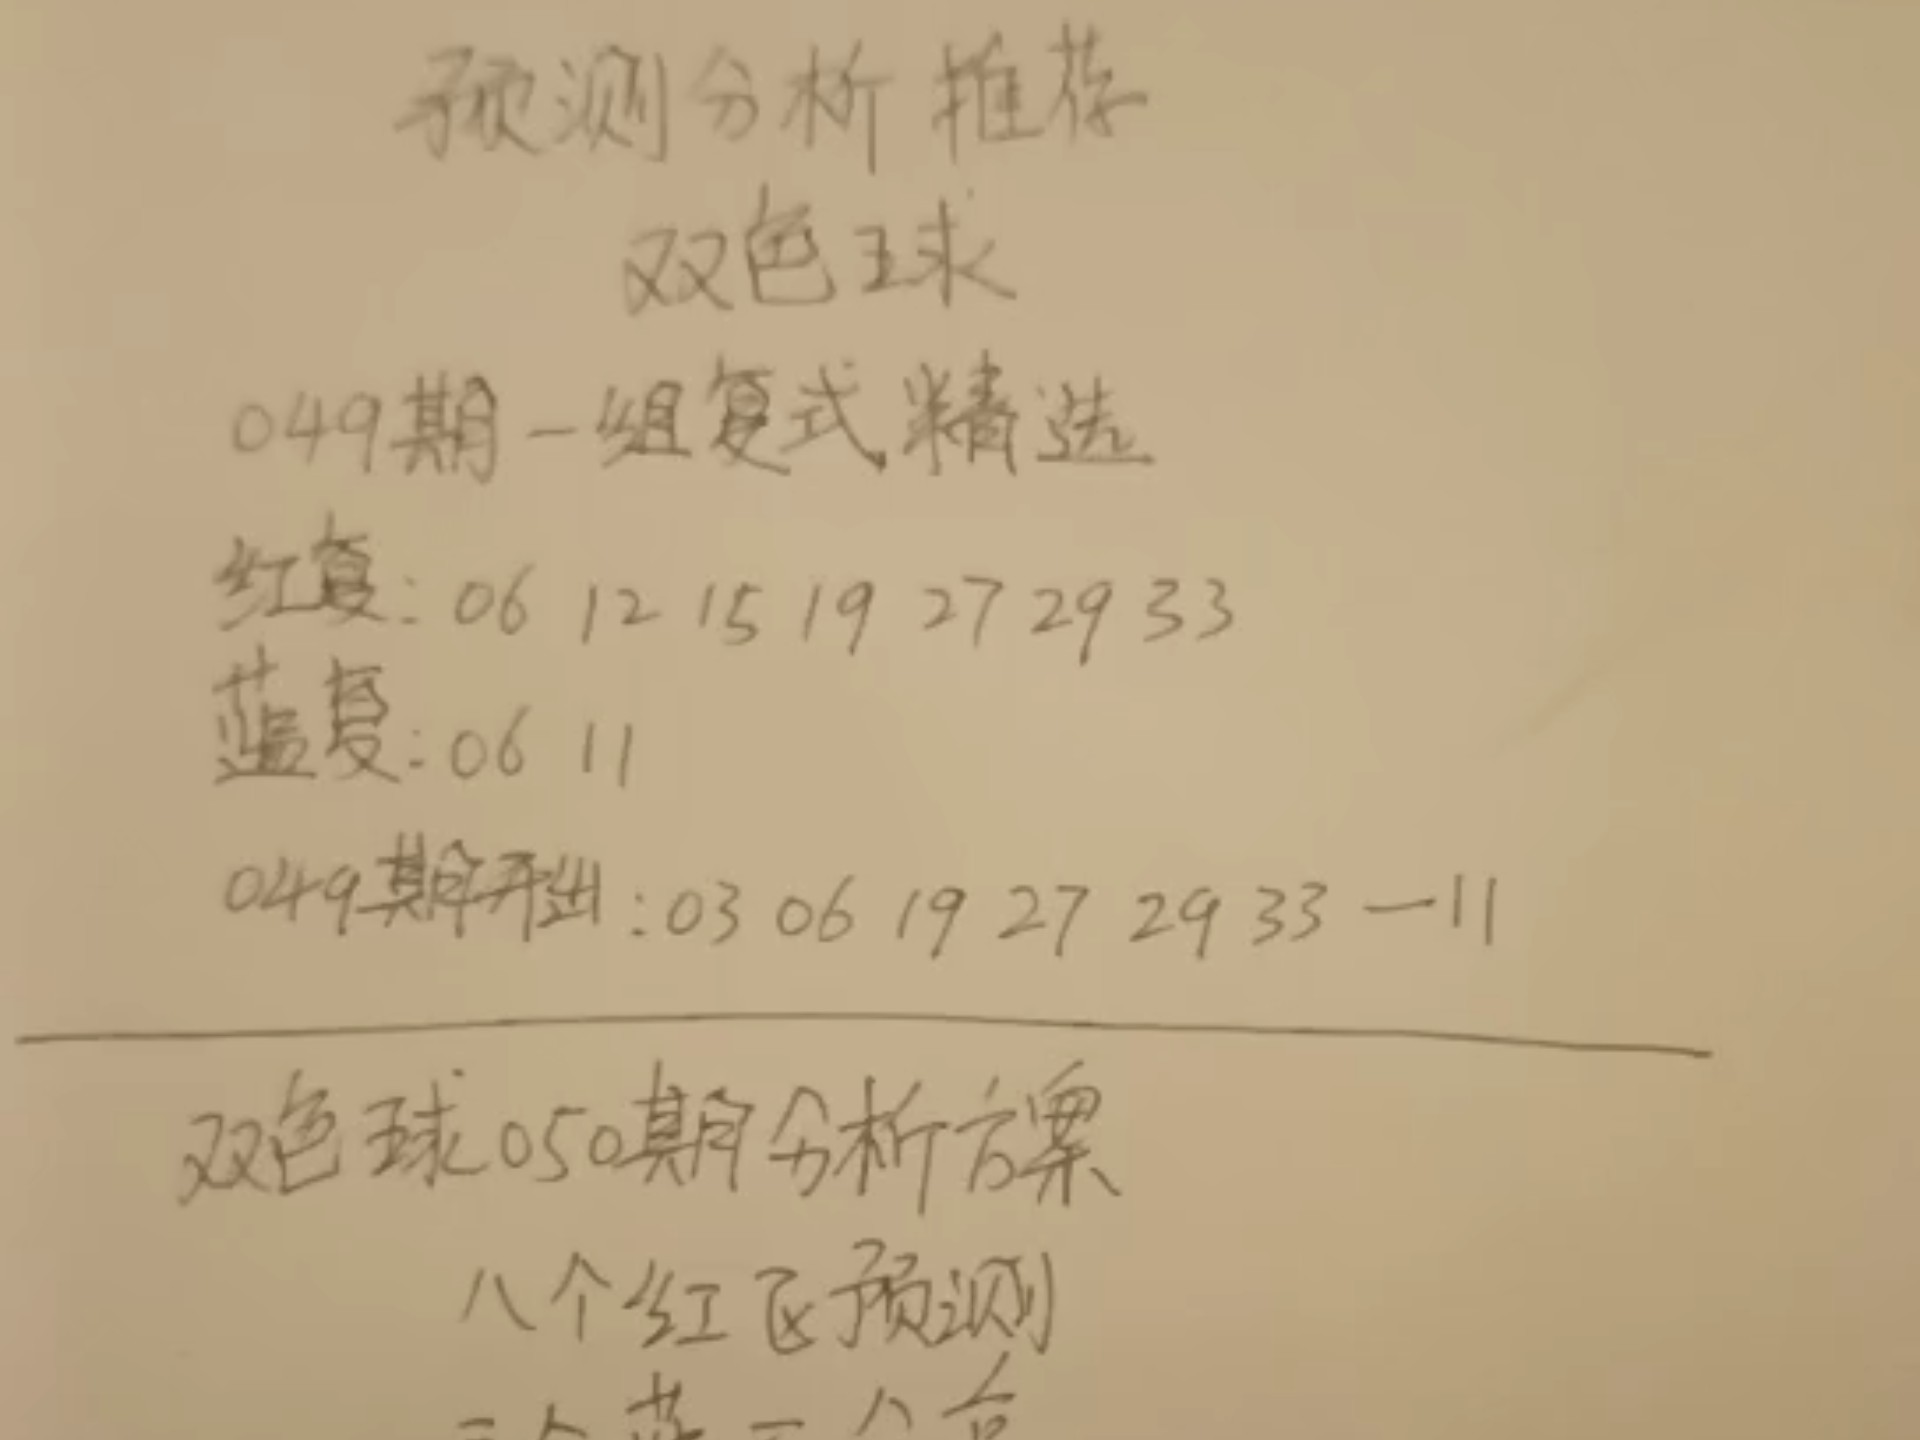 预测分析推荐
双色球
049期一组复式精选
红复: 06 12 15 19 27 29 33
蓝复: 06 11
049期开出: 03 06 19 27 29 33 —11
双色球050期分析方案
八个红飞预测